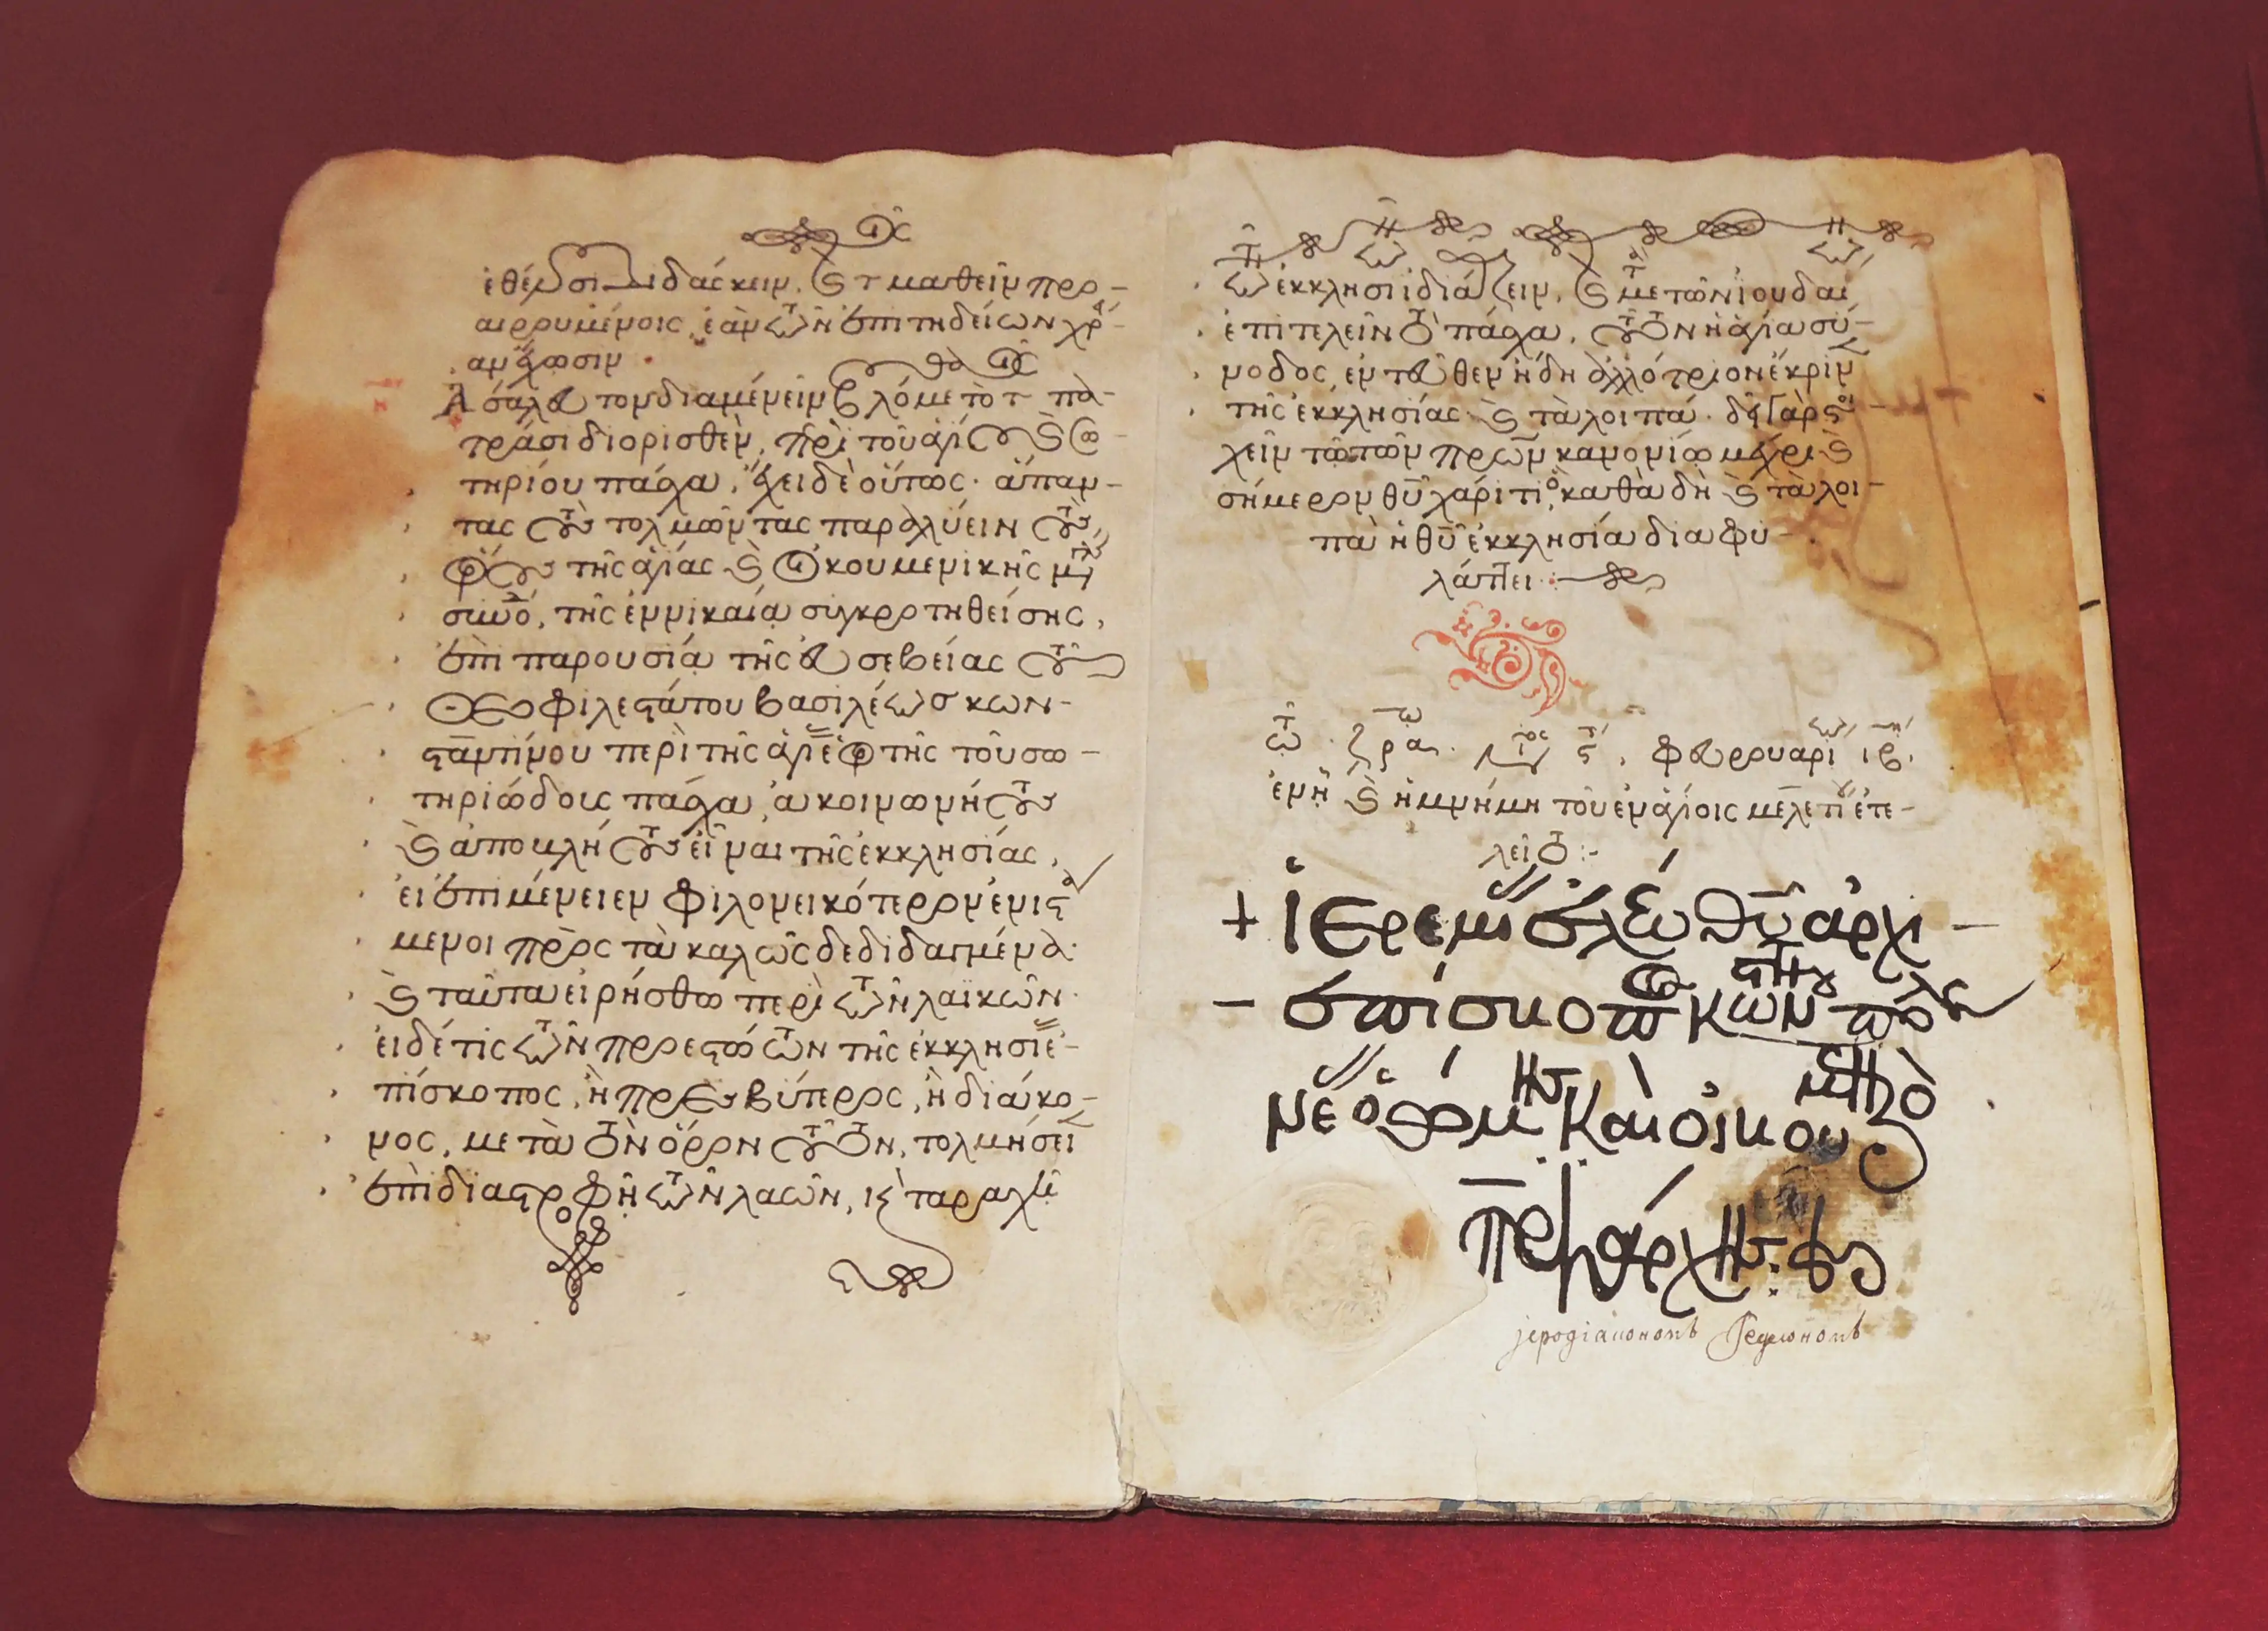 ἐθέλουσι διδάσκειν, καὶ τ μαθεῖν προ-
αιρουμένοις, ἐὰν τῶν ἐπιτηδείων χρό-
αν ἔχωσιν
Ἀσάλευτον διαμένειν βουλόμε τὸ τ πα-
τράσι διορισθὲν, περὶ τοῦ ἁγίου καὶ σω-
τηρίου πάσχα, ἔχει δὲ οὕτως· ἅπαν-
τας τοὺς τολμῶντας παραλύειν τοὺς
ὅρους τῆς ἁγίας καὶ οἰκουμενικῆς μεγάλης
συνόδου, τῆς ἐν νικαίᾳ συγκροτηθείσης,
ἐπὶ παρουσίᾳ τῆς εὐσεβείας τοῦ
θεοφιλεστάτου βασιλέως κων-
σταντίνου περὶ τῆς ἁγίας ἑορτῆς τοῦ σω-
τηριώδους πάσχα, ἀκοινωνήτους
καὶ ἀποκλήτους εἶναι τῆς ἐκκλησίας,
εἰ ἐπιμένειεν φιλονεικότερον ἐνιστά
μενοι πρὸς τὰ καλῶς δεδιδαγμένα·
καὶ ταῦτα εἰρήσθω περὶ τῶν λαϊκῶν·
εἰ δέ τις τῶν προεστώτων τῆς ἐκκλησίας ἐ-
πίσκοπος, ἢ πρεσβύτερος, ἢ διάκο-
νος, μετὰ τὸν ὅρον τοῦτον, τολμήσει
ἐπὶ διαστροφῇ τῶν λαῶν, καὶ ταραχῇ
τῶν ἐκκλησιῶν ἰδιάζειν, καὶ μετὰ τῶν ἰουδαίων
ἐπιτελεῖν τὸ πάσχα, τοῦτον ἡ ἁγία σύ-
νοδος ἐντεῦθεν ἤδη ἀλλότριον ἔκρινεν
τῆς ἐκκλησίας καὶ τὰ λοιπά· δεῖ γὰρ στοι
χεῖν τῷ τῶν πρων κανονίῳ μέχρι καὶ
σήμερον θῦ χάριτι, καθὰ δὴ καὶ τὰ λοι-
πὰ ἡ θῦ ἐκκλησία διαφυ-
λάττει :
φευρουαρίω ιβ.
ἐν ᾗ καὶ ἡ μνήμη τοῦ ἐν ἁγίοις μελετίου ἐπε-
λεῖτο :-
+ ἱερεμίας ἐλέω θῦ ἀρχι-
- ἐπίσκοπος κωνσταντινουπόλεως
νέας ῥώμης καὶ οἰκουμενικὸς
πατριάρχης